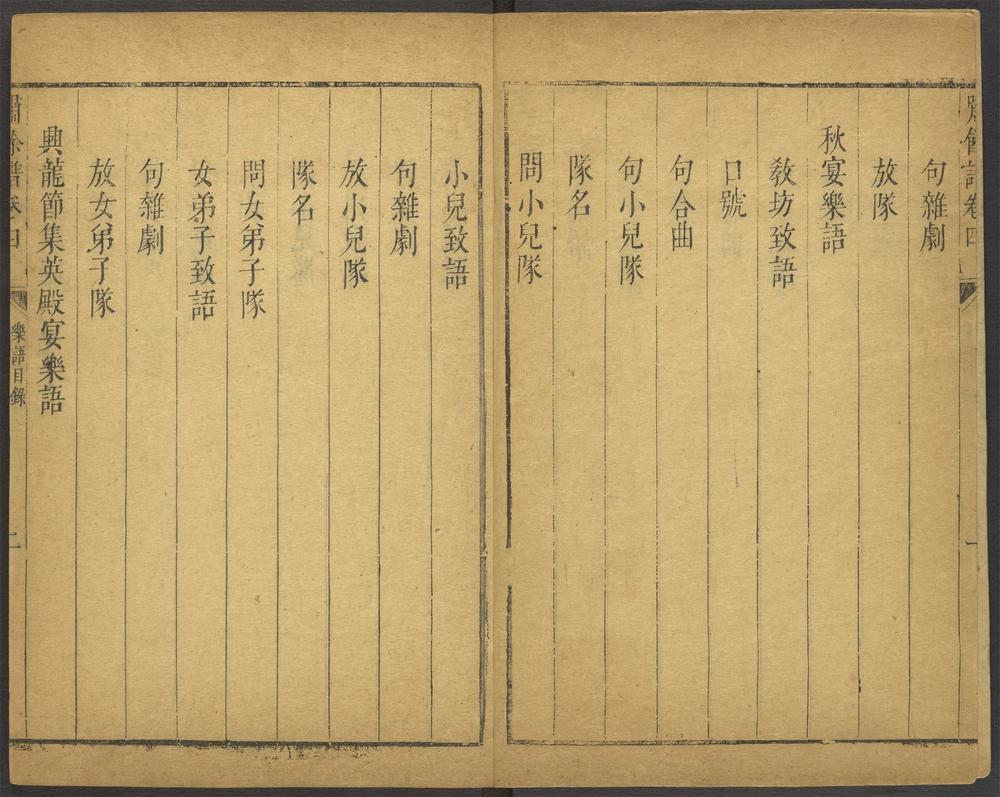 卷四
一
句雜劇
放隊
秋宴樂語
教坊致語
口號
句合曲
句小兒隊
隊名
問小兒隊
小兒致語
句雜劇
放小兒隊
隊名
問女弟子隊
女弟子致語
句雜劇
放女弟子隊
興龍節集英殿宴樂語
樂語目錄
二